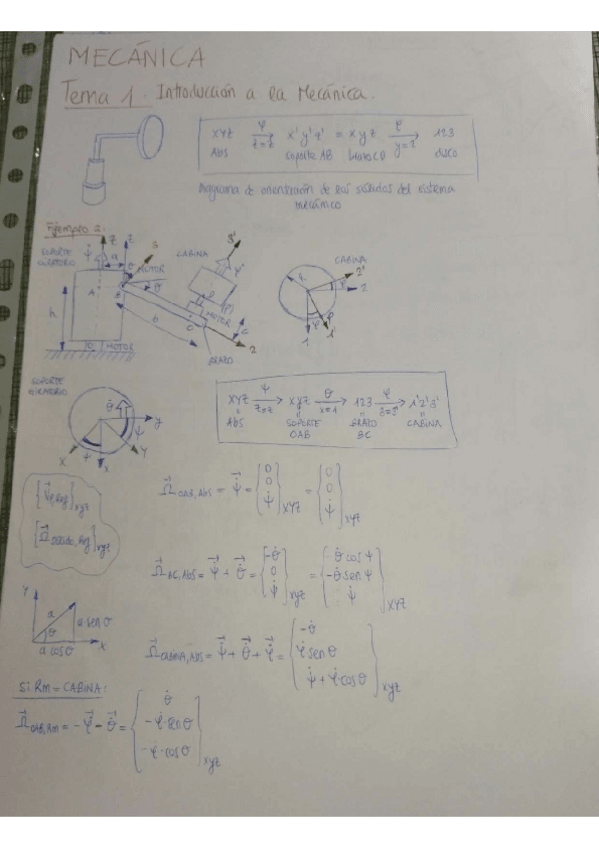 MECÁNICA
Tema 1. Introducción a la Mecánica.
XYZ —φ→ x'y'z' = xyz —φ→ 123
Z=z y=2
Abs soporte AB brazo CD disco
Diagrama de orientación de los sólidos del sistema
mecánico
Ejemplo 2:
SOPORTE
GIRATORIO
MOTOR
CABINA
h
b
MOTOR
MOTOR
BRAZO
CABINA
SOPORTE
GIRATORIO
XYZ —ψ→ xyz —θ→ 123 —φ→ 1'2'3'
Z=z x=1 3=3'
ABS SOPORTE OAB BRAZO BC CABINA
Ω OAB,Abs = ψ̇ = {0 0 ψ̇}XYZ = {0 0 ψ̇}xyz
Ω BC,ABS = ψ̇ + θ̇ = {-θ̇ 0 ψ̇}xyz = {-θ̇ cos ψ -θ̇ sen ψ ψ̇}XYZ
Y
a
a sen θ
θ
X
a cos θ
Ω CABINA,ABS = ψ̇ + θ̇ + φ̇ = {-θ̇ φ̇ sen θ ψ̇ + φ̇ cos θ}xyz
Si Rm = CABINA:
Ω OAB,Rm = -φ̇ - θ̇ = {θ̇ -φ̇·sen θ -φ̇·cos θ}xyz